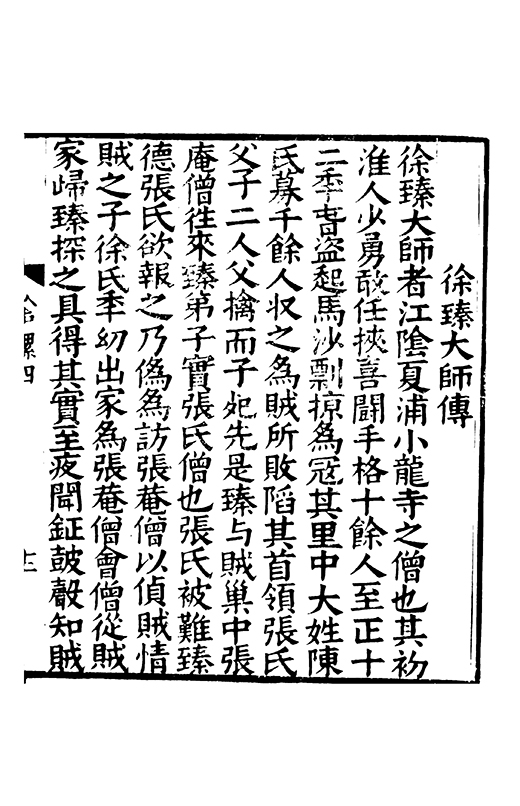 徐臻大師傳
徐臻大師者江陰夏浦小龍寺之僧也其初
淮人少勇敢任挾喜鬪手格十餘人至正十
二季㫺盗起馬沙剽掠為冦其里中大姓陳
氏募千餘人収之為賊所敗䧟其首領張氏
父子二人父擒而子処先是臻与賊巢中張
庵僧徃來臻弟子實張氏僧也張氏被難臻
德張氏欲報之乃僞為訪張菴僧以偵賊情
賊之子徐氏季㓜出家為張菴僧會僧從賊
家㱕臻探之具得其實至夜聞鉦皷聲知賊
螺四
十二